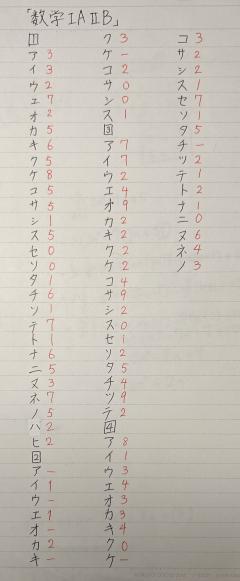 「数学ⅠAⅡB」
1
ア 3
イ 3
ウ 2
エ 7
オ 2
カ 5
キ 6
ク 5
ケ 8
コ 5
サ 5
シ 1
ス 5
セ 0
ソ 0
タ 1
チ 6
ツ 1
テ 7
ト 1
ナ 6
ニ 5
ヌ 3
ネ 7
ノ 5
ハ 2
ヒ 2
2
ア -
イ 1
ウ -
エ 1
オ -
カ 2
キ -
ク 3
ケ -
コ 2
サ 0
シ 0
ス 1
3
ア 7
イ 7
ウ 2
エ 4
オ 9
カ 2
キ 2
ク 2
ケ 2
コ 4
サ 9
シ 2
ス 0
セ 1
ソ 2
タ 5
チ 4
ツ 9
テ 2
4
ア 8
イ 1
ウ 3
エ 4
オ 3
カ 3
キ 4
ク 0
ケ -
コ 3
サ 2
シ 2
ス 1
セ 7
ソ 1
タ 5
チ -
ツ 2
テ 1
ト 2
ナ 1
ニ 0
ヌ 6
ネ 4
ノ 3